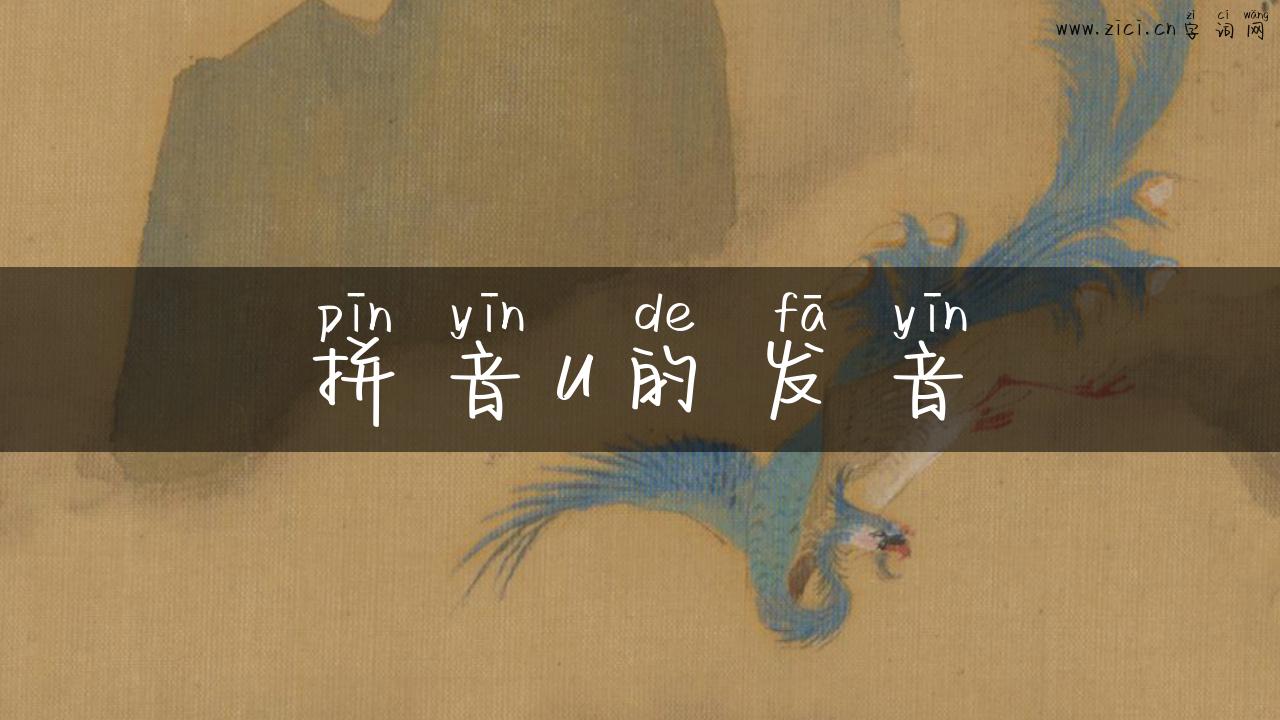 zì cí wǎng
www.zici.cn 字 词 网
pīn yīn de fā yīn
拼 音 u 的 发 音